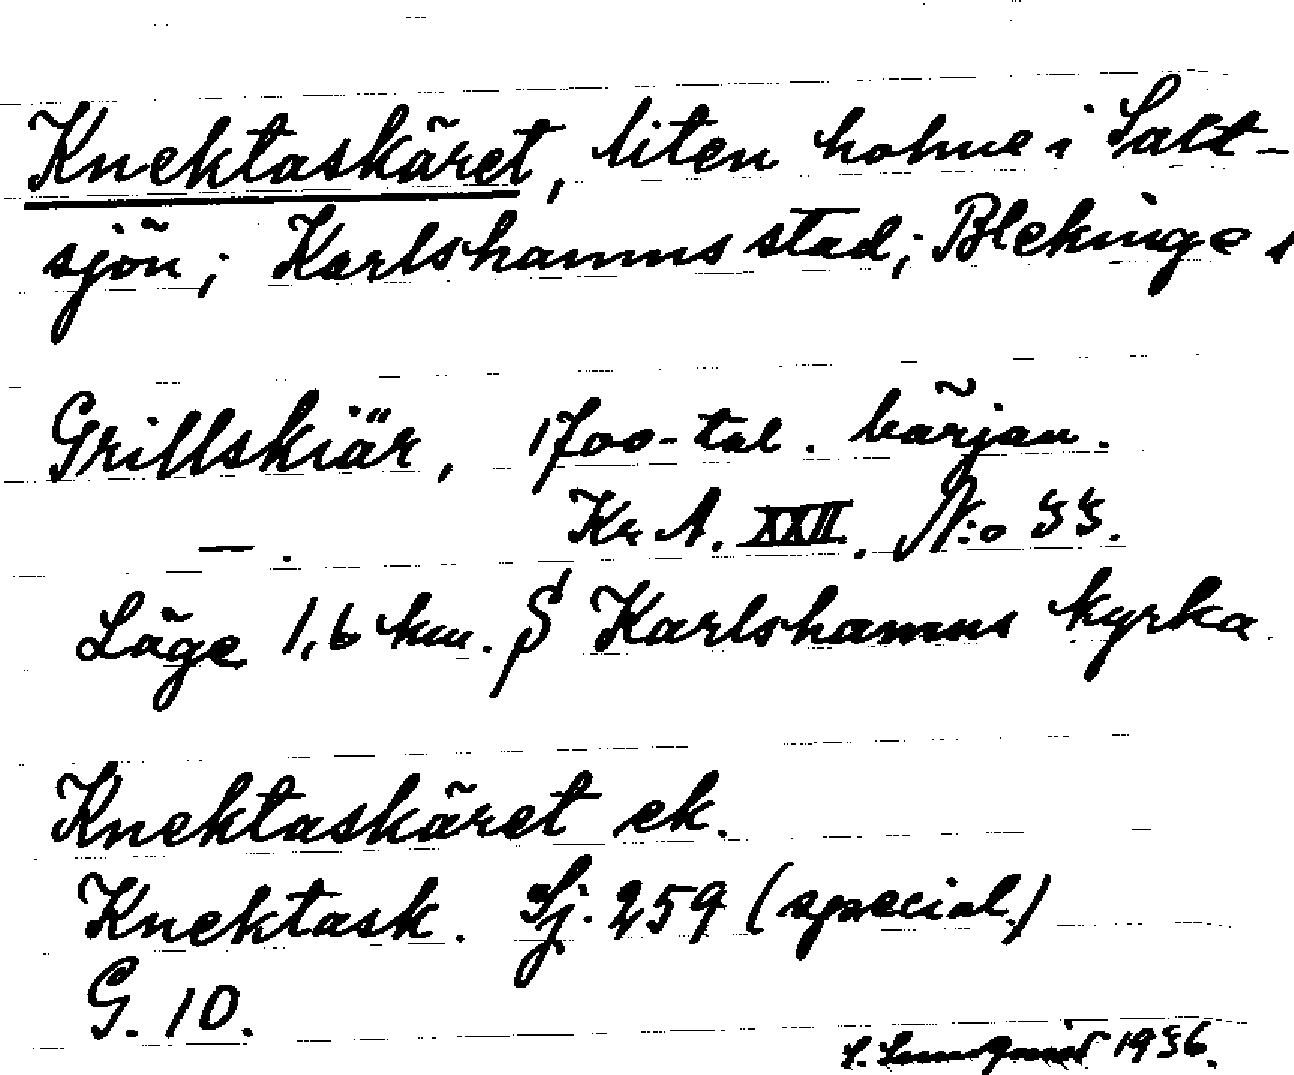 Knektaskäret, liten holme i Salt-
sjön; Karlshamns stad; Blekinge
Grillskiär, 1700-tal. bärjan.
—. Kr A. XXII. N:o 33.
Läge 1,6 km. S Karlshamns kyrka
Knektaskäret ek.
Knektask. Sj. 259 (special.)
G. 10.
1936.